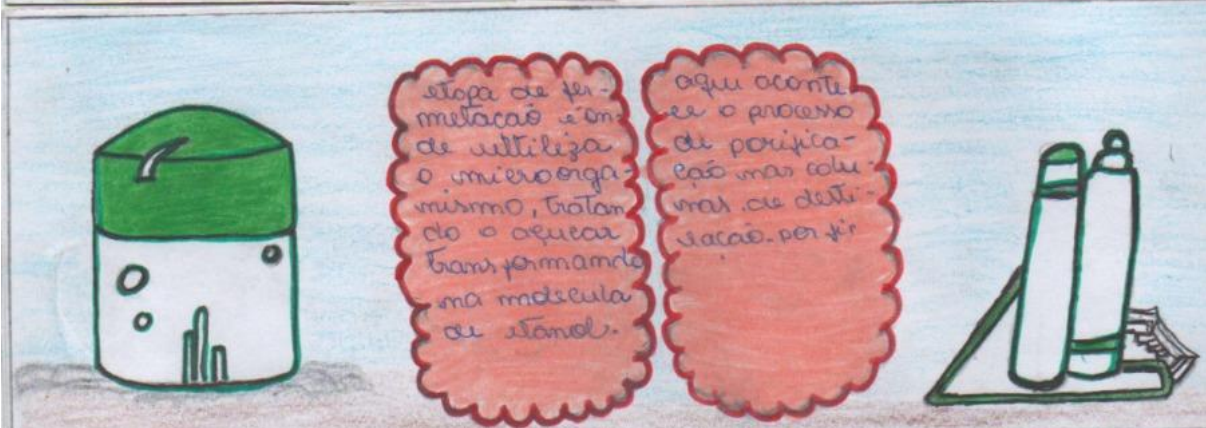 etapa de fer-
metacaõ é on-
de ultiliza
o microorga-
nismo, tratan
do o açucar
transformando
na molecula
de etanol.
aqui aconte-
ce o processo
de porifica-
ção nas colu-
nas de desti-
lação. por fir